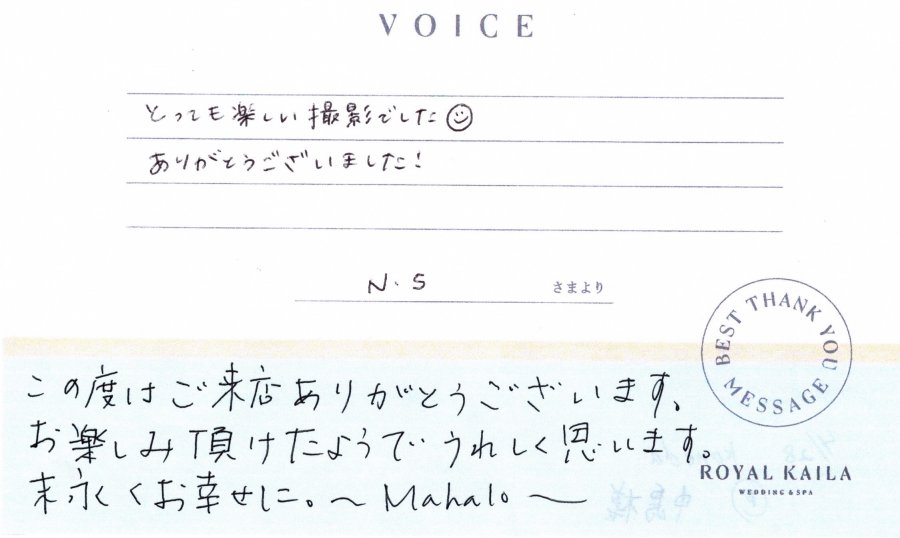 VOICE
とっても楽しい撮影でした☺
ありがとうございました!
N.S さまより
BEST THANK YOU MESSAGE
この度はご来店ありがとうございます。
お楽しみ頂けたようでうれしく思います。
末永くお幸せに。〜Mahalo〜
ROYAL KAILA
WEDDING & SPA